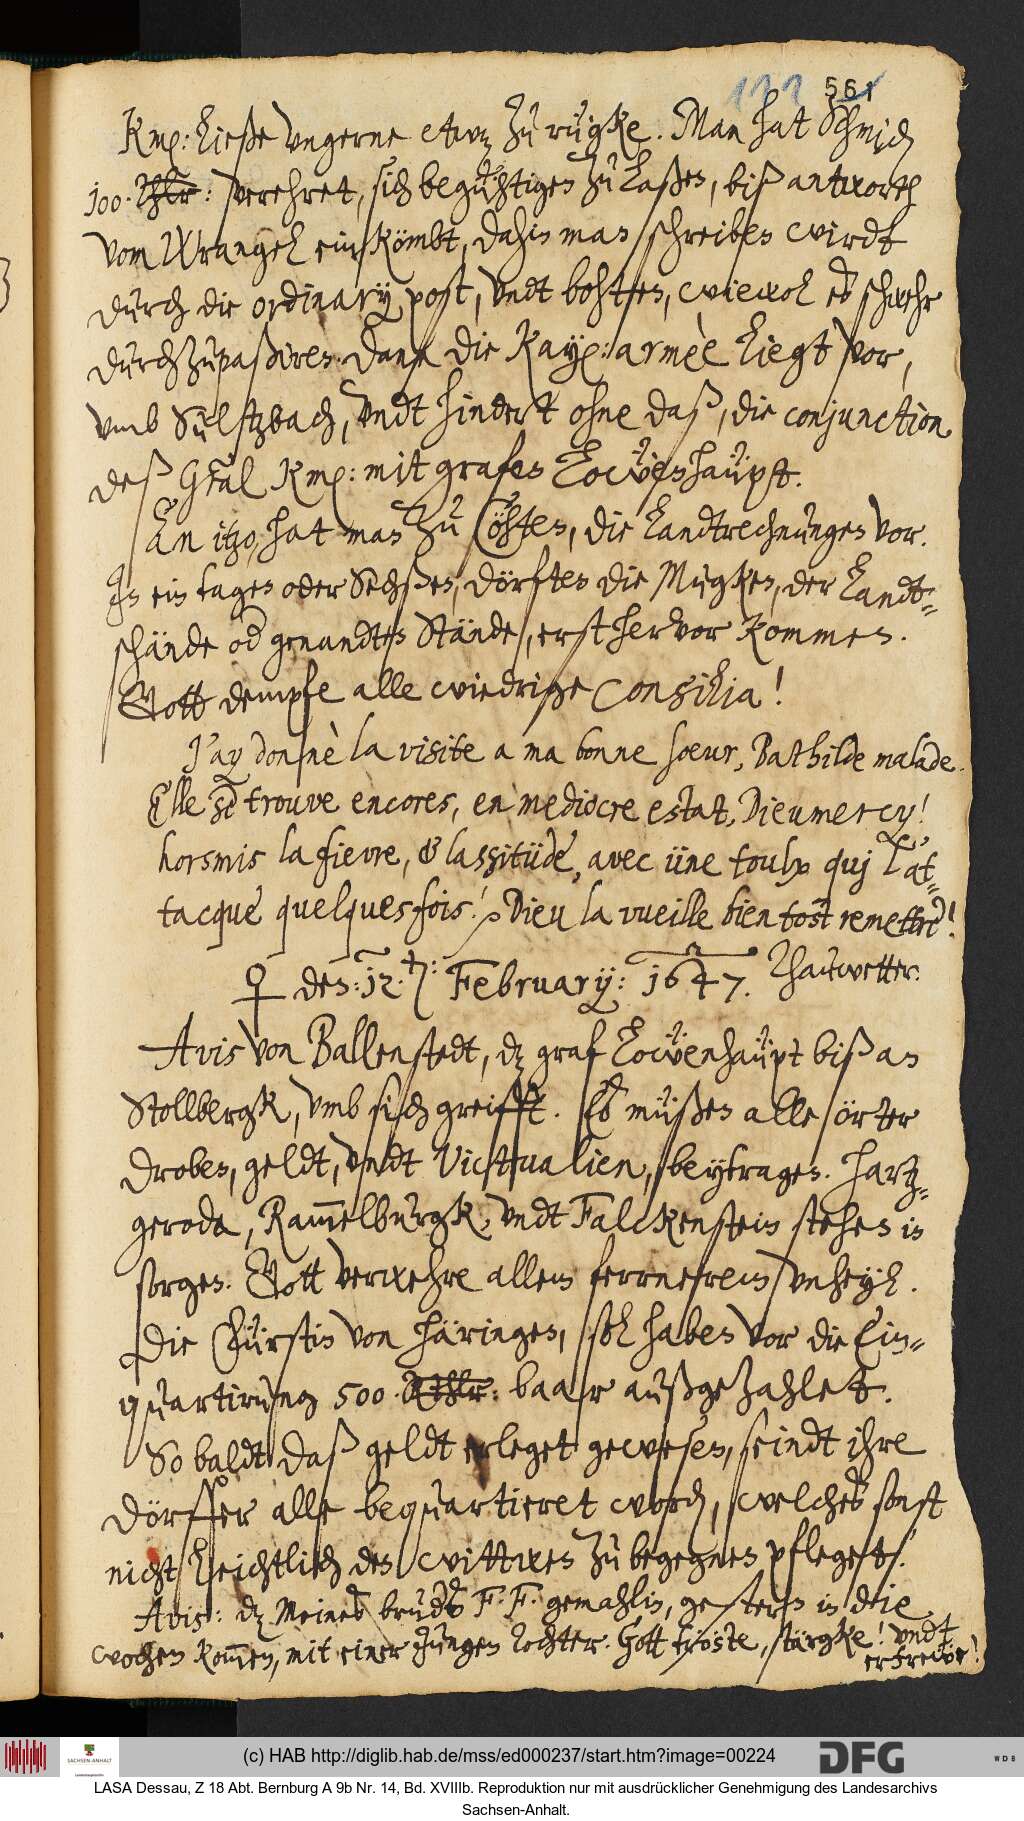 561
Kmß: ließe ungerne etwz zu rügke. Man hat Schmid
100 Thlr: verehret, sich begühtigen zu laßen, biß antwortt
vom Wrangel ein kömbt, dahin man schreiben wirdt
durch die ordinarij post, undt bohten, wiewol es schwehr
durchzupaßiren: dann die Kayß: armèe liegt vor,
umb Sulstzbach, undt hindert ohne daß, die conjunction
deß GFal Kmß: mit grafen Löwenhaüpt.
An itzo, hat man zu Cöhten, die Landtrechnungen vor.
In ein tagen oder Sechßen, dörften die Mugken, der Landt-
schände od genandten Stände, erst hervor kommen.
Gott dempfe alle wiedrige Consilia!
J'ay donnè la visite a ma bonne soeur, Bathilde malade.
Elle se trouve encores, en mediocre estat, Dieu mercy!
horsmis la fievre, & lassitüde, avec üne toulx quj l'at-
tacque quelquesfois! Dieu la vueille bien tost remettre!
♀ den: 12.t: February: 1647. Thauwetter.
Avis von Ballenstedt, dz graf Löwenhaüpt biß an
Stollbergk, umb sich greifft. Es müßen alle örter
droben, geldt, undt Victualien, beytragen. Hartz-
geroda, Ram̅elburgk, undt Falckenstein stehen in
sorgen. Gott verwehre allem fernerem unheyl.
Die Fürstin von Häringen, sol haben vor die Ein-
quartirung 500 Rthlr: baar außgezahlet.
So baldt daß geldt erleget gewesen, seindt ihre
dörffer alle bequartieret word, welches sonst
nicht leichtlich den wittwen zu begegnen pfleget.
Avis: dz Meines brudes F. F. gemahlin, gestern in die
wochen kom̅en, mit einer Jungen Tochter. Gott tröste, stärgke! undt
erfrewe!
(c) HAB http://diglib.hab.de/mss/ed000237/start.htm?image=00224
SACHSEN-ANHALT
DFG
WDB
LASA Dessau, Z 18 Abt. Bernburg A 9b Nr. 14, Bd. XVIIIb. Reproduktion nur mit ausdrücklicher Genehmigung des Landesarchivs
Sachsen-Anhalt.